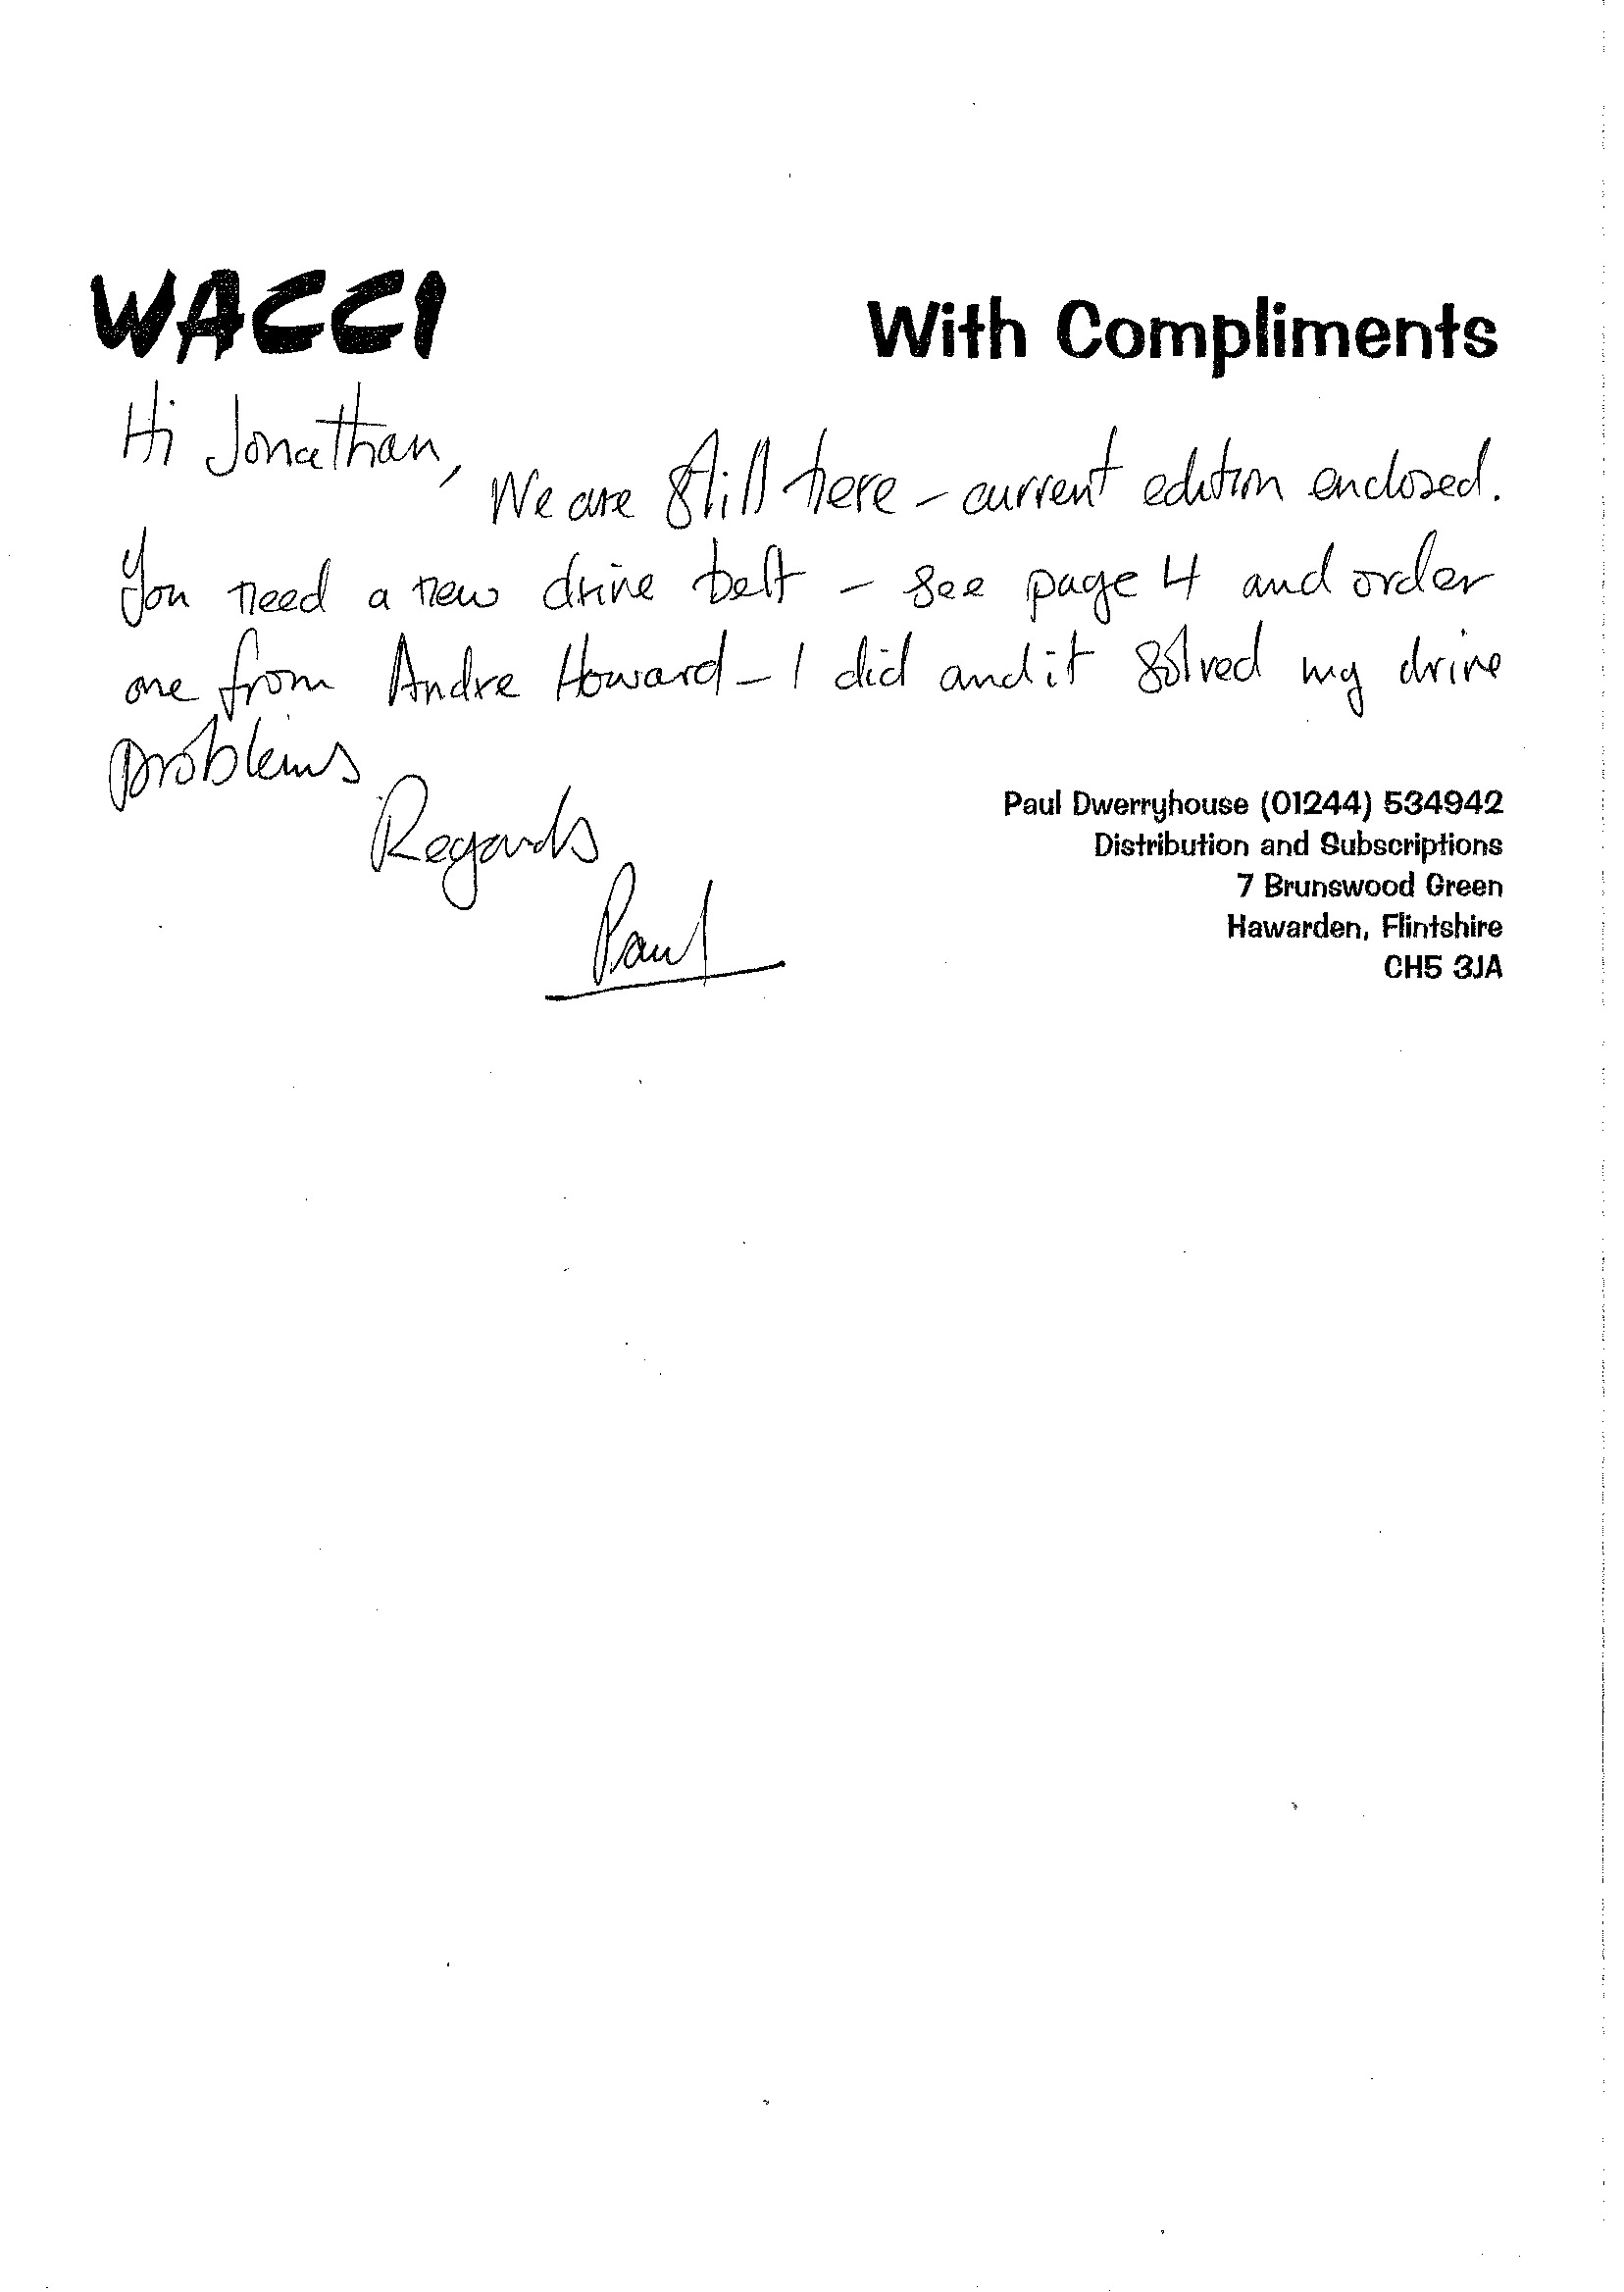 WACCI
With Compliments
Hi Jonathan,
We are still here – current edition enclosed.
You need a new drive belt – see page 4 and order
one from Andre Howard – I did and it solved my drive
problems
Regards
Paul
Paul Dwerryhouse (01244) 534942
Distribution and Subscriptions
7 Brunswood Green
Hawarden, Flintshire
CH5 3JA